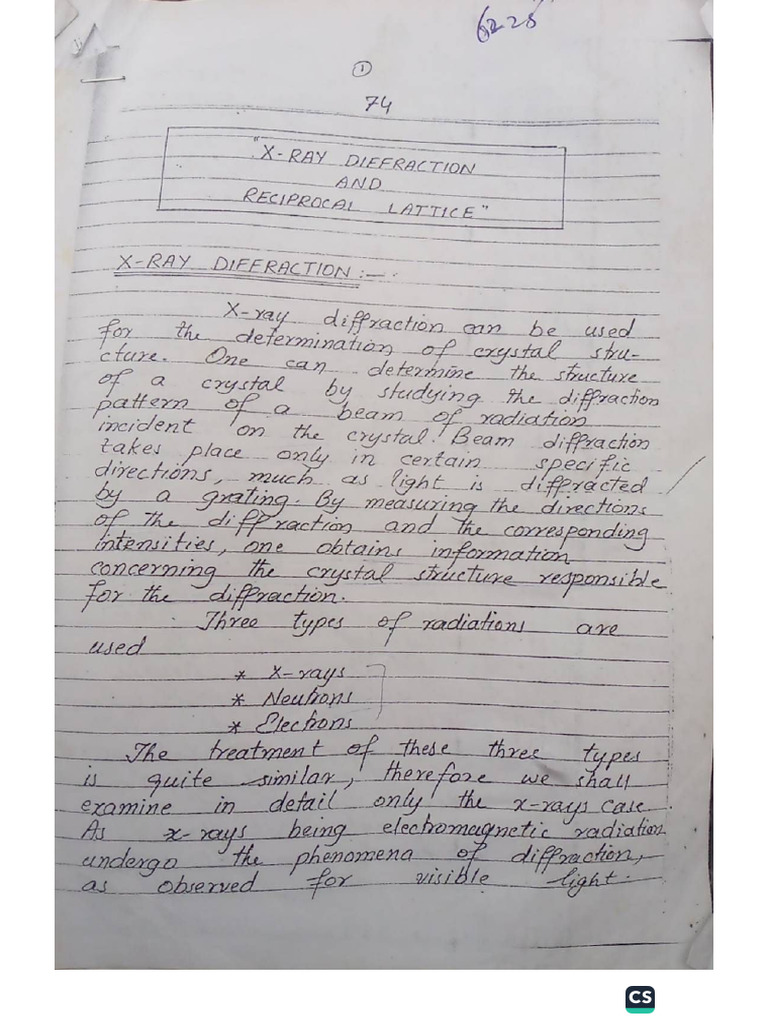 1
74
"X-RAY DIFFRACTION
AND
RECIPROCAL LATTICE"
X-RAY DIFFRACTION :-
X-ray diffraction can be used
for the determination of crystal stru-
cture. One can determine the structure
of a crystal by studying the diffraction
pattern of a beam of radiation
incident on the crystal. Beam diffraction
takes place only in certain specific
directions, much as light is diffracted
by a grating. By measuring the directions
of the diffraction and the corresponding
intensities, one obtains information
concerning the crystal structure responsible
for the diffraction.
Three types of radiations are
used
* X-rays
* Neutrons
* Electrons
The treatment of these three types
is quite similar, therefore we shall
examine in detail only the x-rays case.
As x-rays being electromagnetic radiation
undergo the phenomena of diffraction,
as observed for visible light.
CS